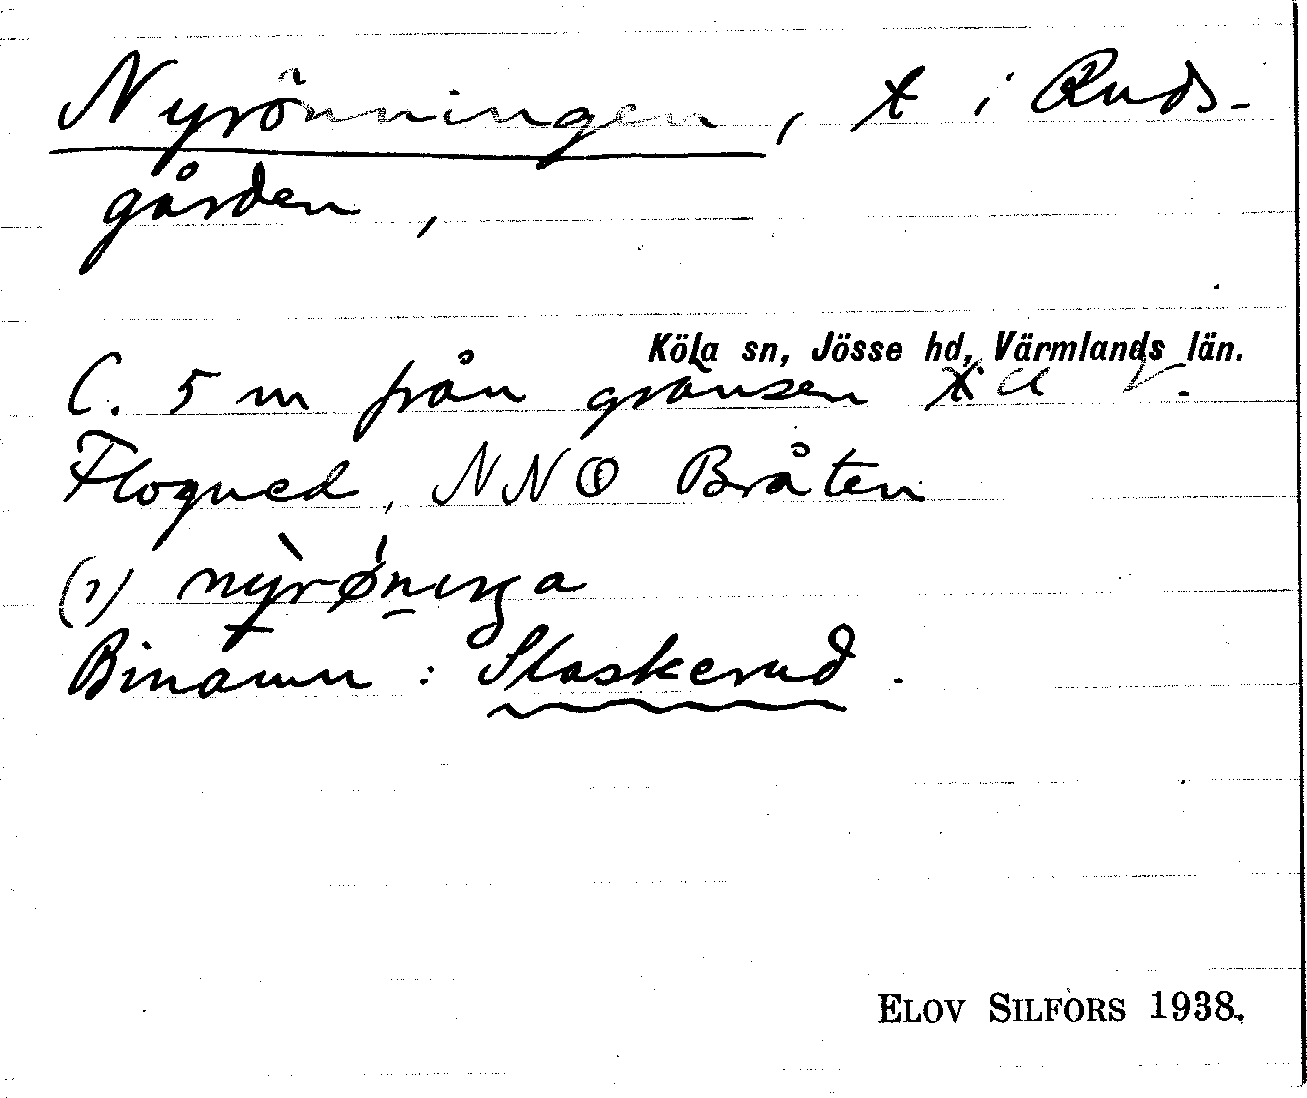 Nyrönningen, t i Ruds-
gården,
Köla sn, Jösse hd, Värmlands län.
C. 5 m från gränsen
Flogned, NNO Bråten
(1) nỳrǿnıŋa
Binamn: Slaskerud.
ELOV SILFORS 1938.